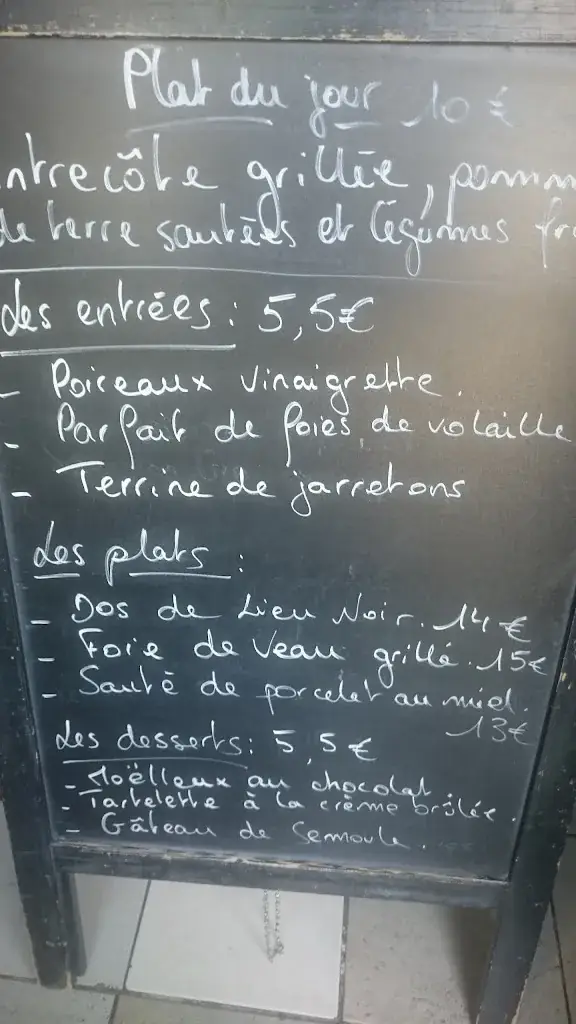 Plat du jour 10 €
ntrecôte grillée, pomm
de terre sautées et légumes fra
Les entrées : 5,5€
- Poireaux vinaigrette.
- Parfait de foies de volaille
- Terrine de jarretons
Les plats :
- Dos de Lieu Noir. 14€
- Foie de Veau grillé. 15€
- Sauté de porcelet au miel.
13€
Les desserts : 5,5€
- Moëlleux au chocolat.
- Tartelette à la crème brûlée.
- Gâteau de Semoule.